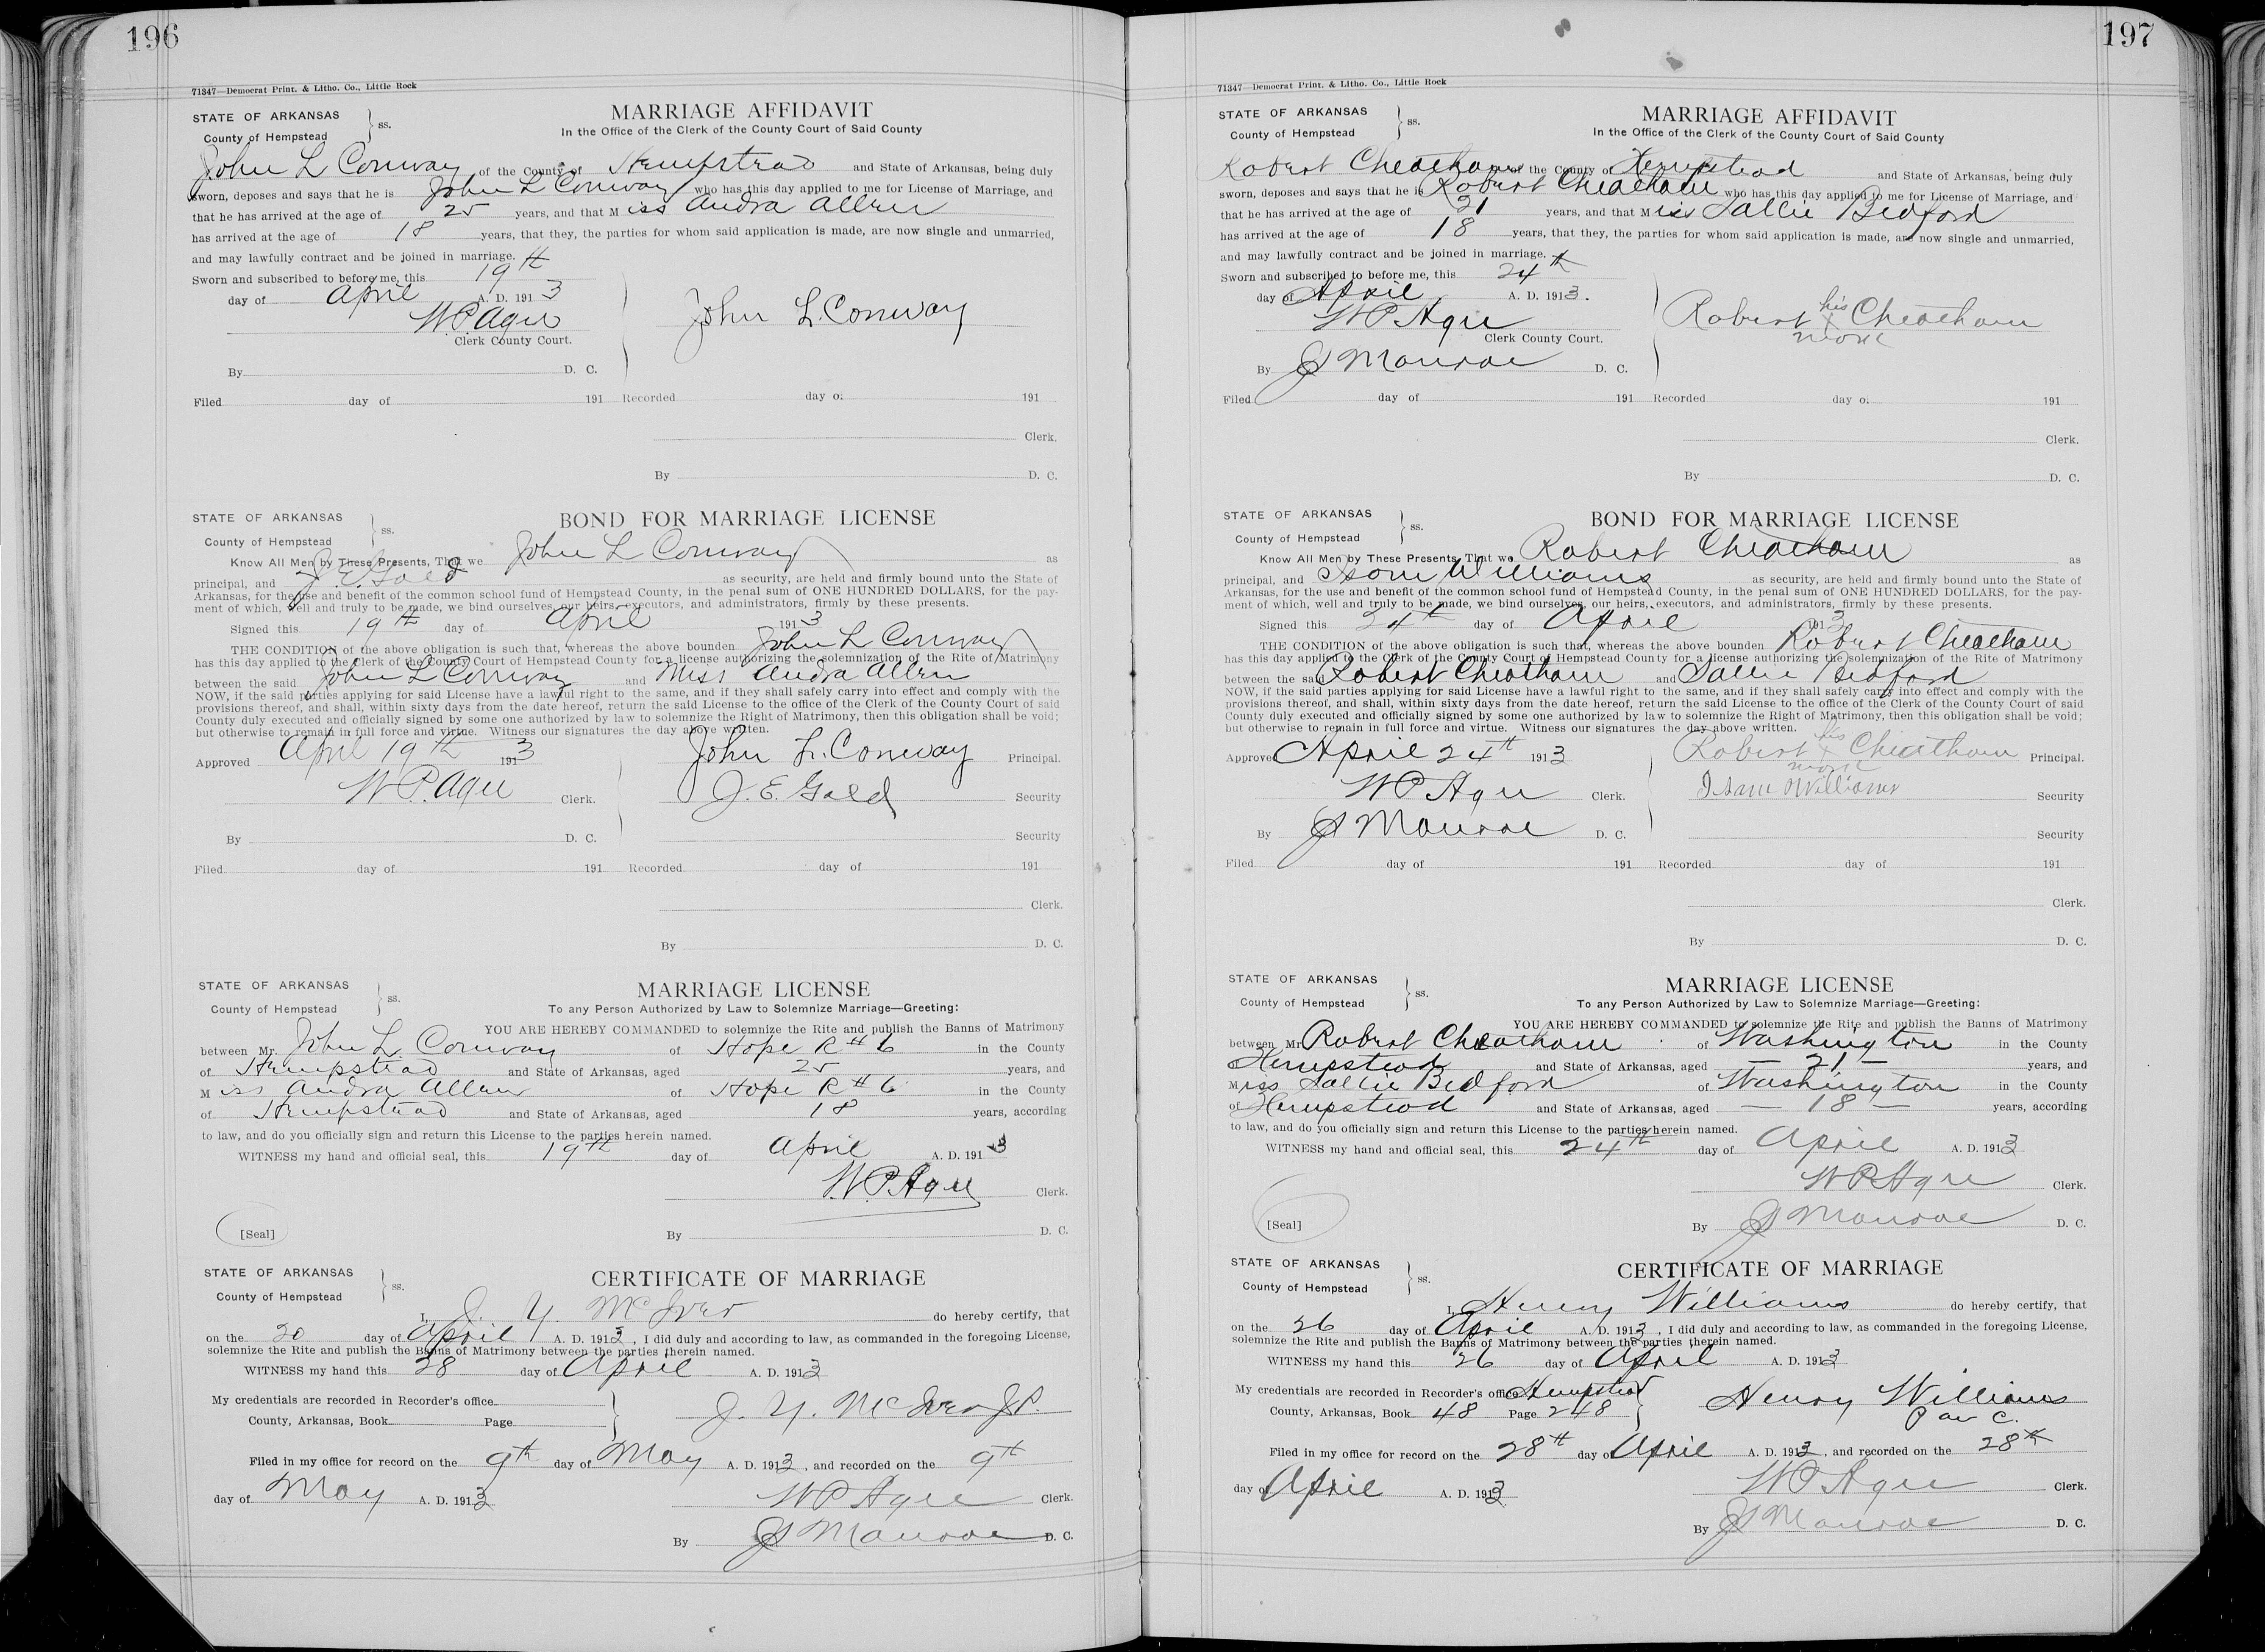 196
71347—Democrat Print. & Litho. Co., Little Rock
STATE OF ARKANSAS
County of Hempstead
ss.
MARRIAGE AFFIDAVIT
In the Office of the Clerk of the County Court of Said County
John L Conway of the County of Hempstead and State of Arkansas, being duly
sworn, deposes and says that he is John L Conway who has this day applied to me for License of Marriage, and
that he has arrived at the age of 25 years, and that Miss Andra Allen
has arrived at the age of 18 years, that they, the parties for whom said application is made, are now single and unmarried,
and may lawfully contract and be joined in marriage.
Sworn and subscribed to before me, this 19th
day of April A. D. 1913
W.P. Agee
Clerk County Court.
John L. Conway
By D. C.
Filed day of 191 Recorded day of 191
Clerk.
By D. C.
STATE OF ARKANSAS
County of Hempstead
ss.
BOND FOR MARRIAGE LICENSE
Know All Men by These Presents, That we John L Conway as
principal, and J.E. Gold as security, are held and firmly bound unto the State of
Arkansas, for the use and benefit of the common school fund of Hempstead County, in the penal sum of ONE HUNDRED DOLLARS, for the pay-
ment of which, well and truly to be made, we bind ourselves, our heirs, executors, and administrators, firmly by these presents.
Signed this 19th day of April 1913
THE CONDITION of the above obligation is such that, whereas the above bounden John L Conway
has this day applied to the Clerk of the County Court of Hempstead County for a license authorizing the solemnization of the Rite of Matrimony
between the said John L Conway and Miss Andra Allen
NOW, if the said parties applying for said License have a lawful right to the same, and if they shall safely carry into effect and comply with the
provisions thereof, and shall, within sixty days from the date hereof, return the said License to the office of the Clerk of the County Court of said
County duly executed and officially signed by some one authorized by law to solemnize the Right of Matrimony, then this obligation shall be void;
but otherwise to remain in full force and virtue. Witness our signatures the day above written.
Approved April 19th 1913
John L. Conway Principal.
W.P. Agee Clerk.
J.E. Gold Security
By D. C.
Security
Filed day of 191 Recorded day of 191
Clerk.
By D. C.
STATE OF ARKANSAS
County of Hempstead
ss.
MARRIAGE LICENSE
To any Person Authorized by Law to Solemnize Marriage—Greeting:
YOU ARE HEREBY COMMANDED to solemnize the Rite and publish the Banns of Matrimony
between Mr. John L. Conway of Hope R # 6 in the County
of Hempstead and State of Arkansas, aged 25 years, and
Miss Andra Allen of Hope R # 6 in the County
of Hempstead and State of Arkansas, aged 18 years, according
to law, and do you officially sign and return this License to the parties herein named.
WITNESS my hand and official seal, this 19th day of April A. D. 1913
W.P. Agee Clerk.
[Seal]
By D. C.
STATE OF ARKANSAS
County of Hempstead
ss.
CERTIFICATE OF MARRIAGE
I, J. Y. McIver do hereby certify, that
on the 20 day of April A. D. 1913, I did duly and according to law, as commanded in the foregoing License,
solemnize the Rite and publish the Banns of Matrimony between the parties therein named.
WITNESS my hand this 28 day of April A. D. 1913
My credentials are recorded in Recorder's office
County, Arkansas, Book Page
J. Y. McIver J.P.
Filed in my office for record on the 9th day of May A. D. 1913, and recorded on the 9th
day of May A. D. 1913
W P Agee Clerk.
By J Monroe D. C.
197
71347—Democrat Print. & Litho. Co., Little Rock
STATE OF ARKANSAS
County of Hempstead
ss.
MARRIAGE AFFIDAVIT
In the Office of the Clerk of the County Court of Said County
Robert Cheatham of the County of Hempstead and State of Arkansas, being duly
sworn, deposes and says that he is Robert Cheatham who has this day applied to me for License of Marriage, and
that he has arrived at the age of 21 years, and that Miss Sallie Bedford
has arrived at the age of 18 years, that they, the parties for whom said application is made, are now single and unmarried,
and may lawfully contract and be joined in marriage.
Sworn and subscribed to before me, this 24th
day of April A. D. 1913.
W P Agee
Clerk County Court.
Robert his x mark Cheatham
By J Monroe D. C.
Filed day of 191 Recorded day of 191
Clerk.
By D. C.
STATE OF ARKANSAS
County of Hempstead
ss.
BOND FOR MARRIAGE LICENSE
Know All Men by These Presents, That we Robert Cheatham as
principal, and Isom Williams as security, are held and firmly bound unto the State of
Arkansas, for the use and benefit of the common school fund of Hempstead County, in the penal sum of ONE HUNDRED DOLLARS, for the pay-
ment of which, well and truly to be made, we bind ourselves, our heirs, executors, and administrators, firmly by these presents.
Signed this 24th day of April 1913
THE CONDITION of the above obligation is such that, whereas the above bounden Robert Cheatham
has this day applied to the Clerk of the County Court of Hempstead County for a license authorizing the solemnization of the Rite of Matrimony
between the said Robert Cheatham and Sallie Bedford
NOW, if the said parties applying for said License have a lawful right to the same, and if they shall safely carry into effect and comply with the
provisions thereof, and shall, within sixty days from the date hereof, return the said License to the office of the Clerk of the County Court of said
County duly executed and officially signed by some one authorized by law to solemnize the Right of Matrimony, then this obligation shall be void;
but otherwise to remain in full force and virtue. Witness our signatures the day above written.
Approved April 24th 1913
Robert his x mark Cheatham Principal.
W P Agee Clerk.
Isam Williams Security
By J Monroe D. C.
Security
Filed day of 191 Recorded day of 191
Clerk.
By D. C.
STATE OF ARKANSAS
County of Hempstead
ss.
MARRIAGE LICENSE
To any Person Authorized by Law to Solemnize Marriage—Greeting:
YOU ARE HEREBY COMMANDED to solemnize the Rite and publish the Banns of Matrimony
between Mr Robert Cheatham of Washington in the County
Hempstead and State of Arkansas, aged — 21 — years, and
Miss Sallie Bedford of Washington in the County
of Hempstead and State of Arkansas, aged — 18 — years, according
to law, and do you officially sign and return this License to the parties herein named.
WITNESS my hand and official seal, this 24th day of April A. D. 1913
W P Agee Clerk.
[Seal]
By J Monroe D. C.
STATE OF ARKANSAS
County of Hempstead
ss.
CERTIFICATE OF MARRIAGE
I, Henry Williams do hereby certify, that
on the 26 day of April A. D. 1913, I did duly and according to law, as commanded in the foregoing License,
solemnize the Rite and publish the Banns of Matrimony between the parties therein named.
WITNESS my hand this 26 day of April A. D. 1913
My credentials are recorded in Recorder's office Hempstead
County, Arkansas, Book 48 Page 248
Henry Williams
Filed in my office for record on the 28th day of April A. D. 1913, and recorded on the 28th
day of April A. D. 1913
W P Agee Clerk.
By J Monroe D. C.